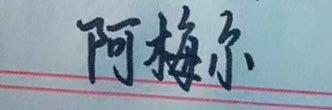 阿梅尔